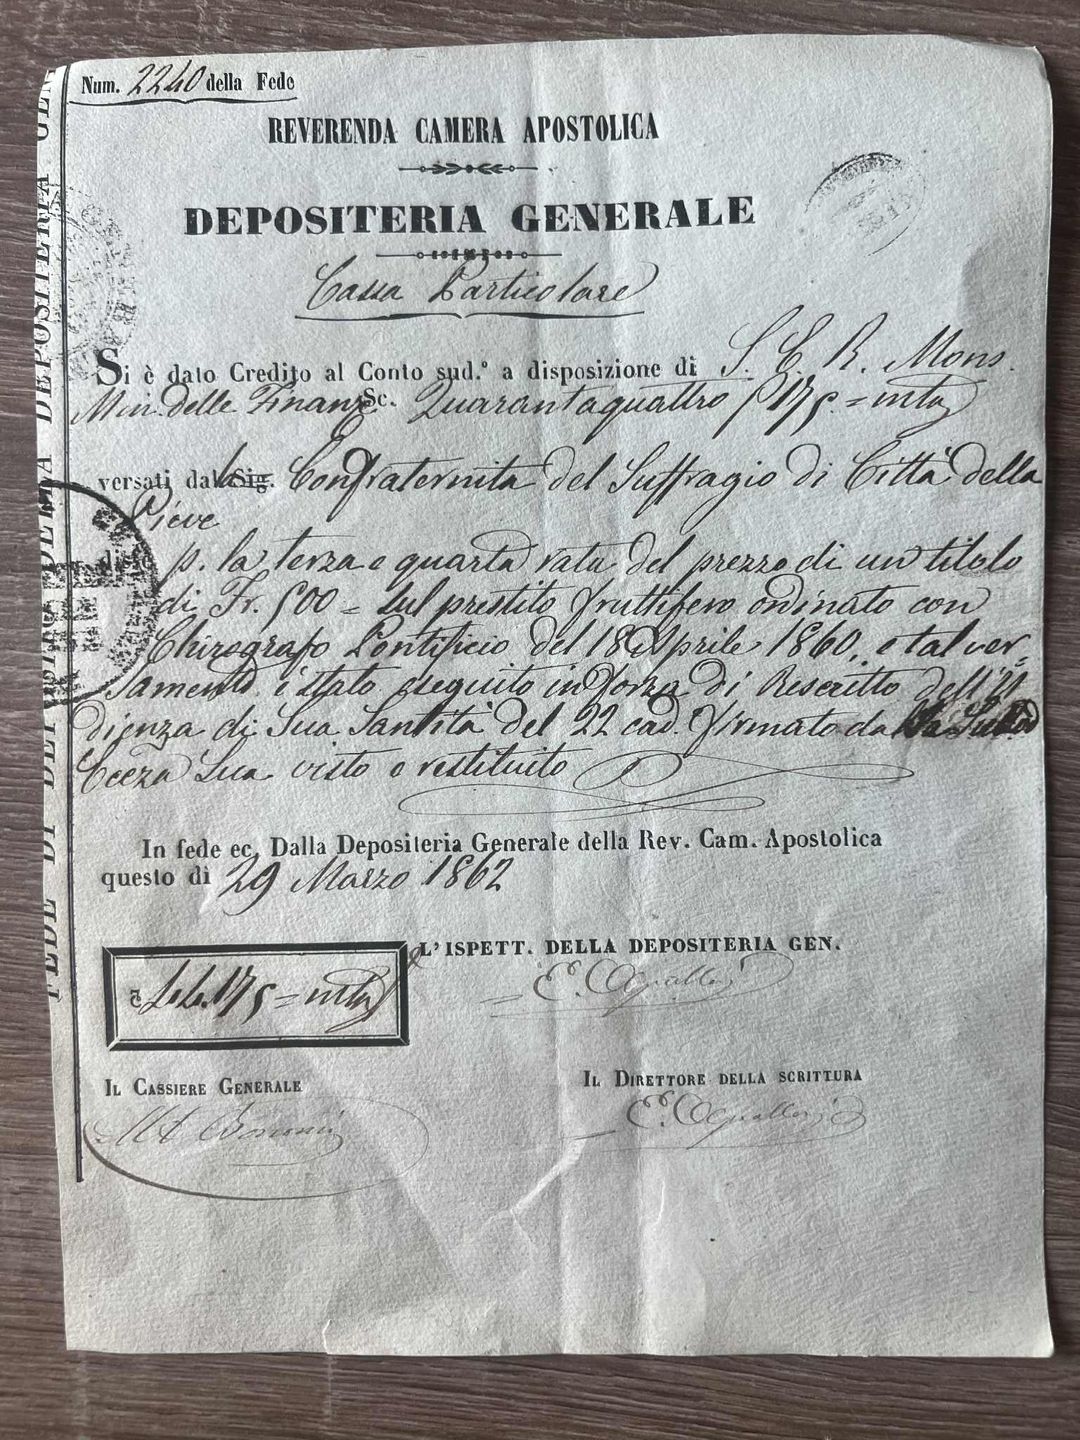 Num. 2240 della Fede
REVERENDA CAMERA APOSTOLICA
DEPOSITERIA GENERALE
Cassa Particolare
Si è dato Credito al Conto sud.º a disposizione di S. E. R. Mons.
Min. delle Finanze Sc. Quarantaquattro / 17 5. = mta
versati dalla Sig. Confraternita del Suffragio di Città della
Pieve
p. la terza e quarta rata del prezzo di un titolo
di Fr. 500 = sul prestito fruttifero ordinato con
Chirografo Pontificio del 18 Aprile 1860, e tal ver-
samento è stato eseguito in forza di Rescritto dell'U
dienza di Sua Santità del 22 cad. firmato da
Eccza Sua visto e restituito
In fede ec. Dalla Depositeria Generale della Rev. Cam. Apostolica
questo di 29 Marzo 1862
L'ISPETT. DELLA DEPOSITERIA GEN.
44. 17 5 = mta
IL CASSIERE GENERALE
IL DIRETTORE DELLA SCRITTURA
FEDE DI DEPOSITO DELLA DEPOSITERIA GEN